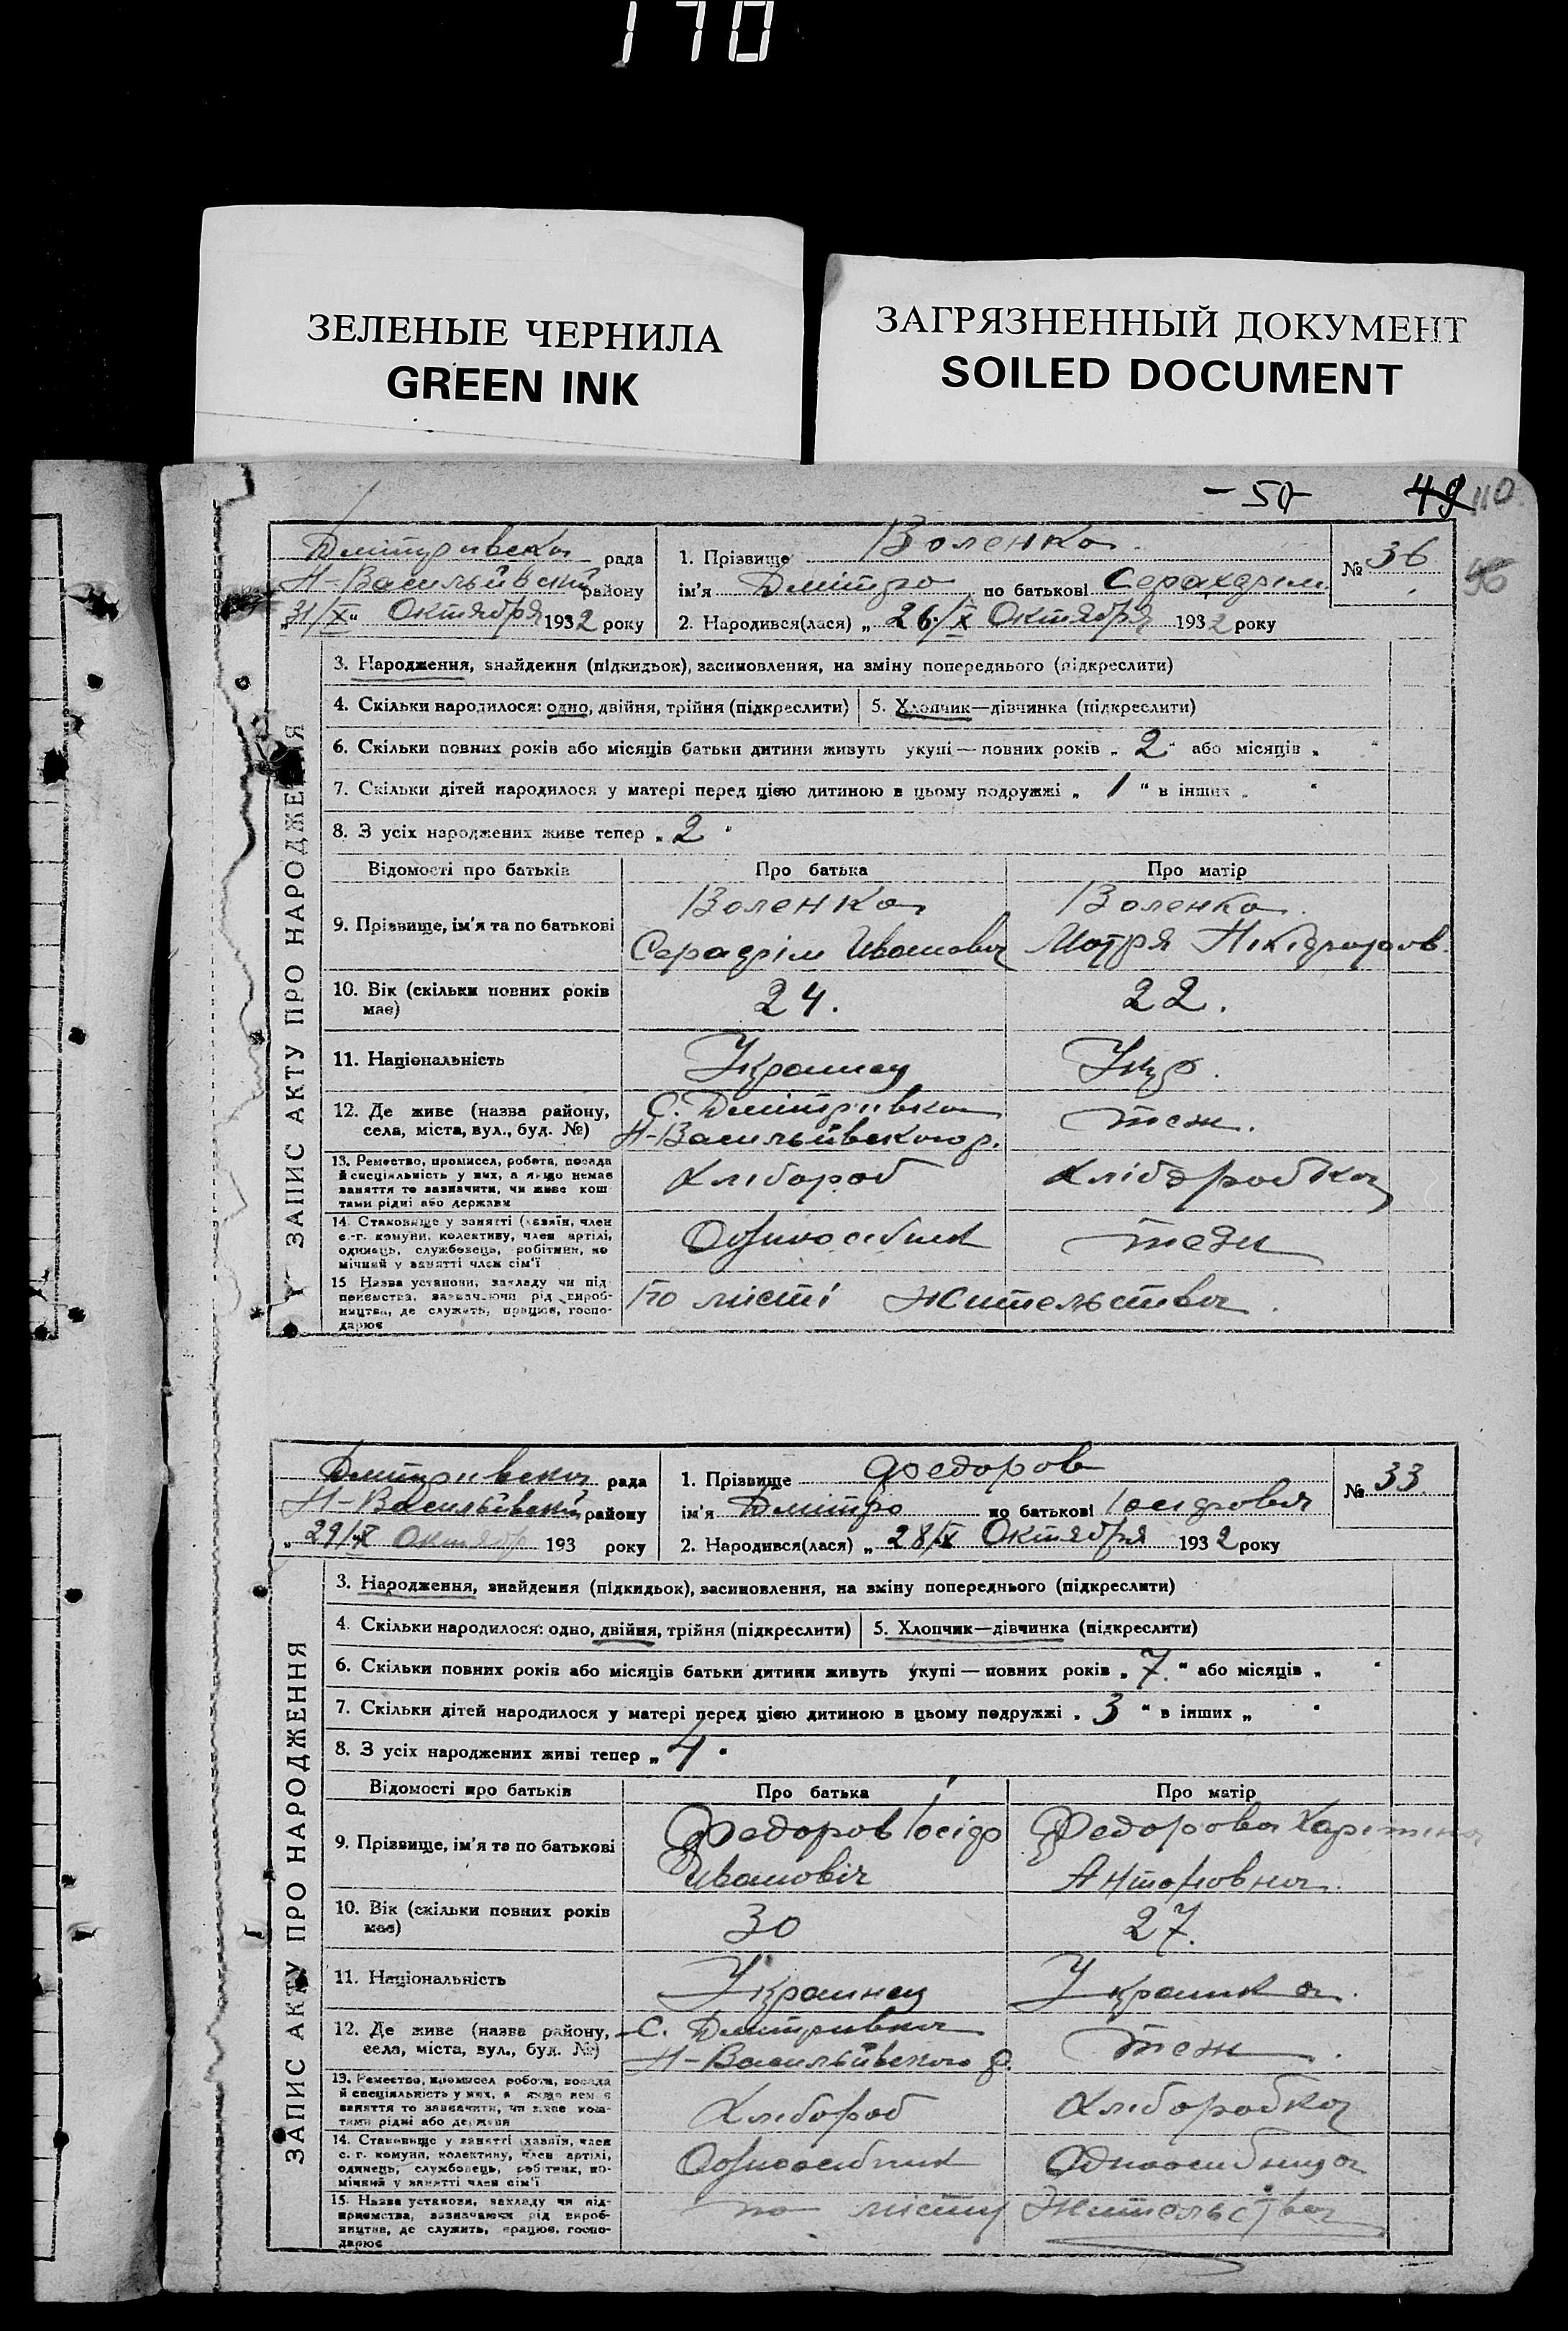 170
ЗЕЛЕНЫЕ ЧЕРНИЛА
GREEN INK
ЗАГРЯЗНЕННЫЙ ДОКУМЕНТ
SOILED DOCUMENT
110
ЗАПИС АКТУ ПРО НАРОДЖЕННЯ
Дмітрівска рада
Н-Васильївский району
„31/X“ Октября 1932 року
1. Прізвище Воленко
ім'я Дмітро по батькові
2. Народився(лася) „ 26/X Октября 1932 року
№ 36
3. Народження, знайдення (підкидьок), засиновлення, на зміну попереднього (підкреслити)
4. Скільки народилося: одно, двійня, трійня (підкреслити)
5. Хлопчик—дівчинка (підкреслити)
6. Скільки повних років або місяців батьки дитини живуть укупі — повних років „ 2 “ або місяців „ “
7. Скільки дітей народилося у матері перед цією дитиною в цьому подружжі „ 1 “ в інших „ “
8. З усіх народжених живе тепер „ 2 “
Відомості про батьків Про батька Про матір
9. Прізвище, ім'я та по батькові
Воленко Воленко
Серафім Иванович Мотря
10. Вік (скільки повних років має) 24. 22.
11. Національність Украинец Укр.
12. Де живе (назва району, села, міста, вул., буд. №)
С. Дмітрівка
Н-Васильївского р. теж.
13. Ремество, промисел, робота, посада й спеціяльність у них, а якщо немає заняття то зазначити, чи живе коштами рідні або держави
Хлібороб Хліборобка
14. Становище у занятті (хазяїн, член с.-г. комуни, колективу, член артілі, одинець, службовець, робітник, помічний у занятті член сім'ї
Одноосібник теж
15. Назва установи, закладу чи підприємства, зазначаючи рід виробництва, де служить, працює, господарює
По місті жительства.
ЗАПИС АКТУ ПРО НАРОДЖЕННЯ
Дмітрівска рада
Н-Васильївский району
„ 29/X Октябр 193 року
1. Прізвище Федоров
ім'я Дмітро по батькові Іосіфовіч
2. Народився(лася) „ 28/X Октября 1932 року
№ 33
3. Народження, знайдення (підкидьок), засиновлення, на зміну попереднього (підкреслити)
4. Скільки народилося: одно, двійня, трійня (підкреслити)
5. Хлопчик—дівчинка (підкреслити)
6. Скільки повних років або місяців батьки дитини живуть укупі — повних років „ 7. “ або місяців „ “
7. Скільки дітей народилося у матері перед цією дитиною в цьому подружжі „ 3 “ в інших „ “
8. З усіх народжених живі тепер „ 4 “
Відомості про батьків Про батька Про матір
9. Прізвище, ім'я та по батькові
Федоров Іосіф Федорова
Ивановіч Антоновна
10. Вік (скільки повних років має) 30 27.
11. Національність Украинец Украинка
12. Де живе (назва району, села, міста, вул., буд. №)
С. Дмитрівка
Н-Васильївского р. теж
13. Ремество, промисел, робота, посада й спеціяльність у них, а якщо немає заняття то зазначити, чи живе коштами рідні або держави
Хлібороб Хліборобка
14. Становище у занятті (хазяїн, член с.-г. комуни, колективу, член артілі, одинець, службовець, робітник, помічний у занятті член сім'ї
Одноосібник Одноосибница
15. Назва установи, закладу чи підприємства, зазначаючи рід виробництва, де служить, працює, господарює
по місту Жительства